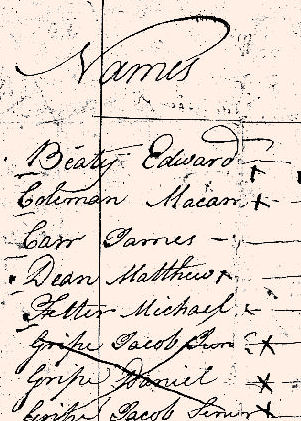 Names
Beaty Edward
Coleman Macan
Carr James
Dean Matthew
Fetter Michael
Gripe Jacob Jun
Gripe Daniel
Gripe Jacob Senr